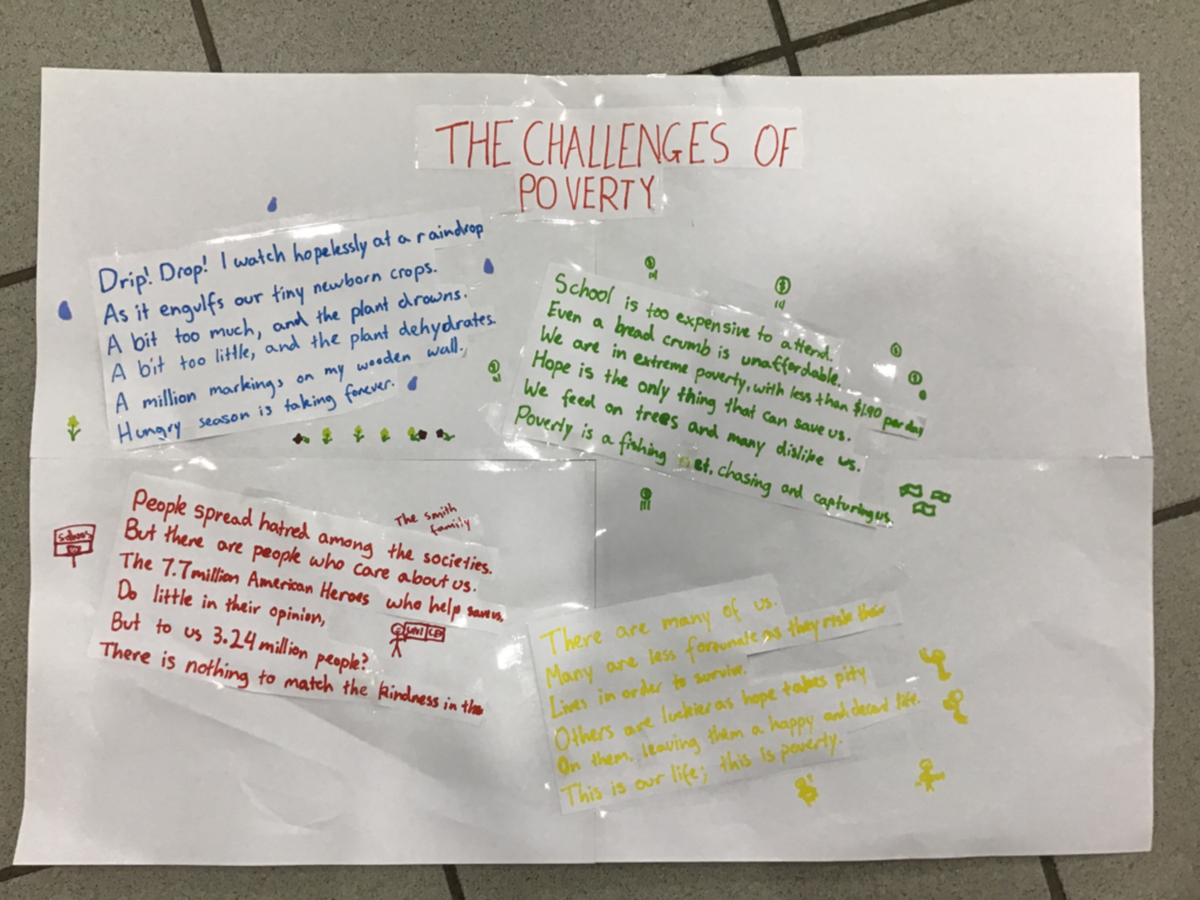 THE CHALLENGES OF
POVERTY
Drip! Drop! I watch hopelessly at a raindrop
As it engulfs our tiny newborn crops.
A bit too much, and the plant drowns.
A bit too little, and the plant dehydrates.
A million markings on my wooden wall.
Hungry season is taking forever.
School is too expensive to attend.
Even a bread crumb is unaffordable.
We are in extreme poverty, with less than $1.90 per day
Hope is the only thing that can save us.
We feed on trees and many dislike us.
Poverty is a fishing et, chasing and capturing us.
The smith
family
People spread hatred among the societies.
But there are people who care about us.
The 7.7 million American Heroes who help save us,
Do little in their opinion,
But to us 3.24 million people?
There is nothing to match the kindness in the
There are many of us.
Many are less fortunate as they risk their
Lives in order to survive.
Others are luckier as hope takes pity
On them, leaving them a happy and decent life.
This is our life; this is poverty.